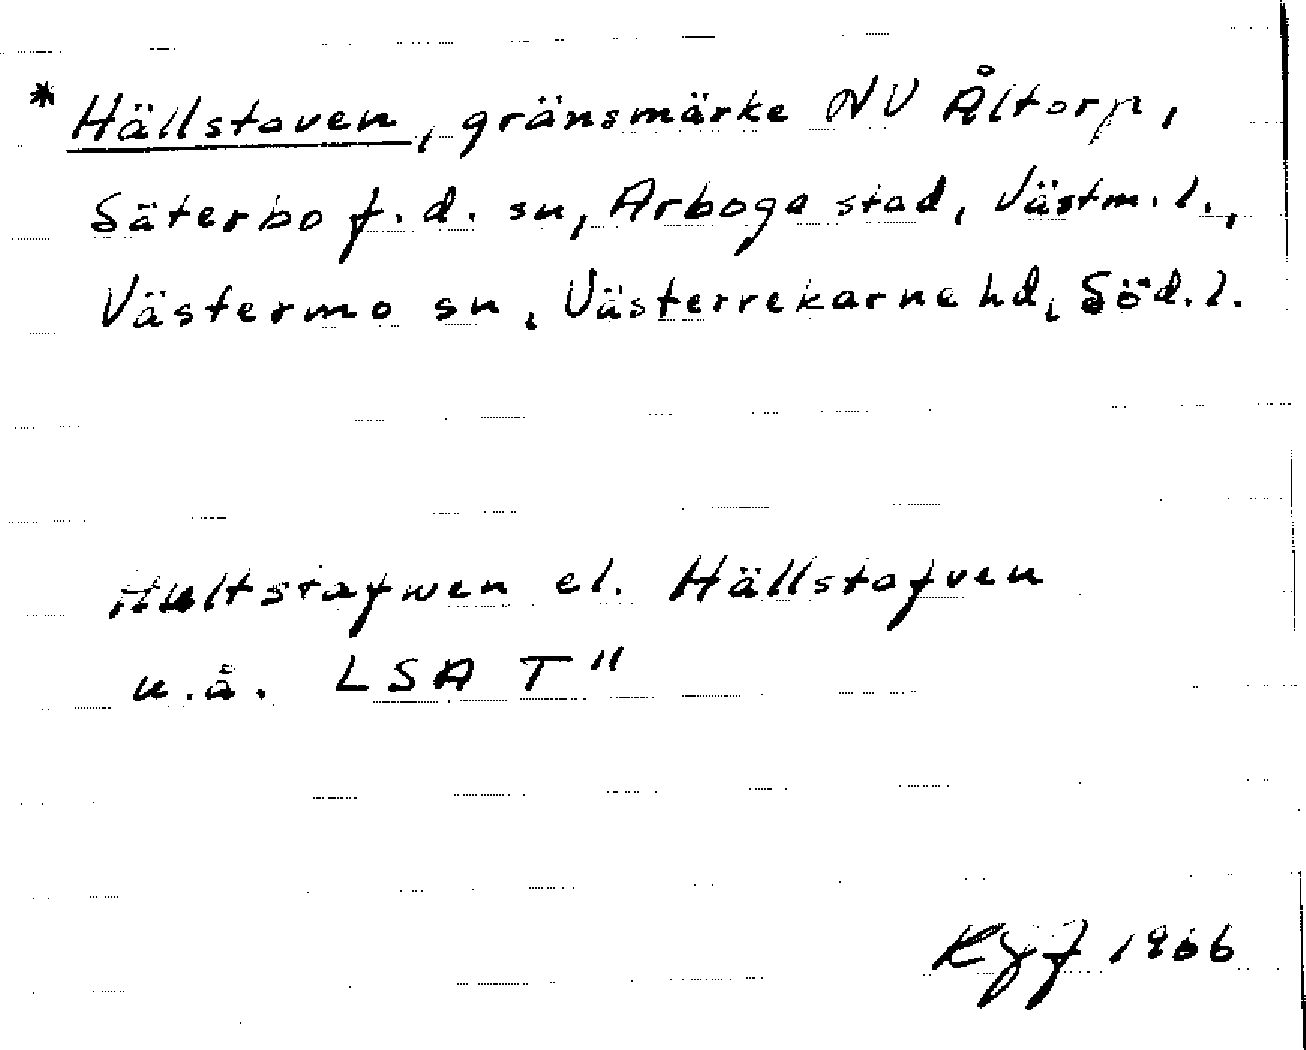 * Hällstaven, gränsmärke NV Åltorp,
Säterbo f.d. sn, Arboga stad, Västm.l.,
Västermo sn, Västerrekarne hd, Söd.l.
Hultstafwen el. Hällstafven
u.å. LSA T"
1966